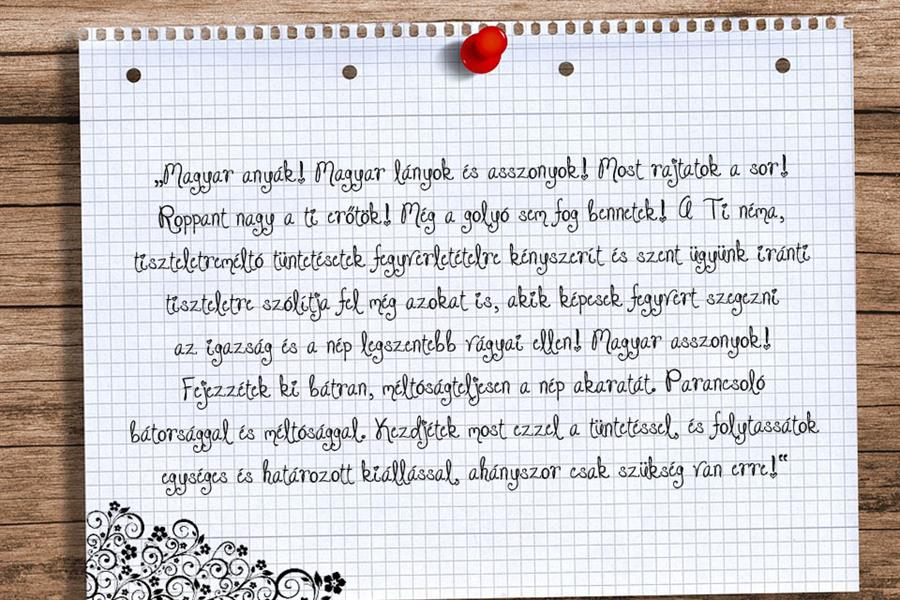 „Magyar anyák! Magyar lányok és asszonyok! Most rajtatok a sor!
Roppant nagy a ti erőtök! Még a golyó sem fog bennetek! A Ti néma,
tiszteletreméltó tüntetésetek fegyverletételre kényszerít és szent ügyünk iránti
tiszteletre szólítja fel még azokat is, akik képesek fegyvert szegezni
az igazság és a nép legszentebb vágyai ellen! Magyar asszonyok!
Fejezzétek ki bátran, méltóságteljesen a nép akaratát. Parancsoló
bátorsággal és méltósággal. Kezdjétek most ezzel a tüntetéssel, és folytassátok
egységes és határozott kiállással, ahányszor csak szükség van erre!“